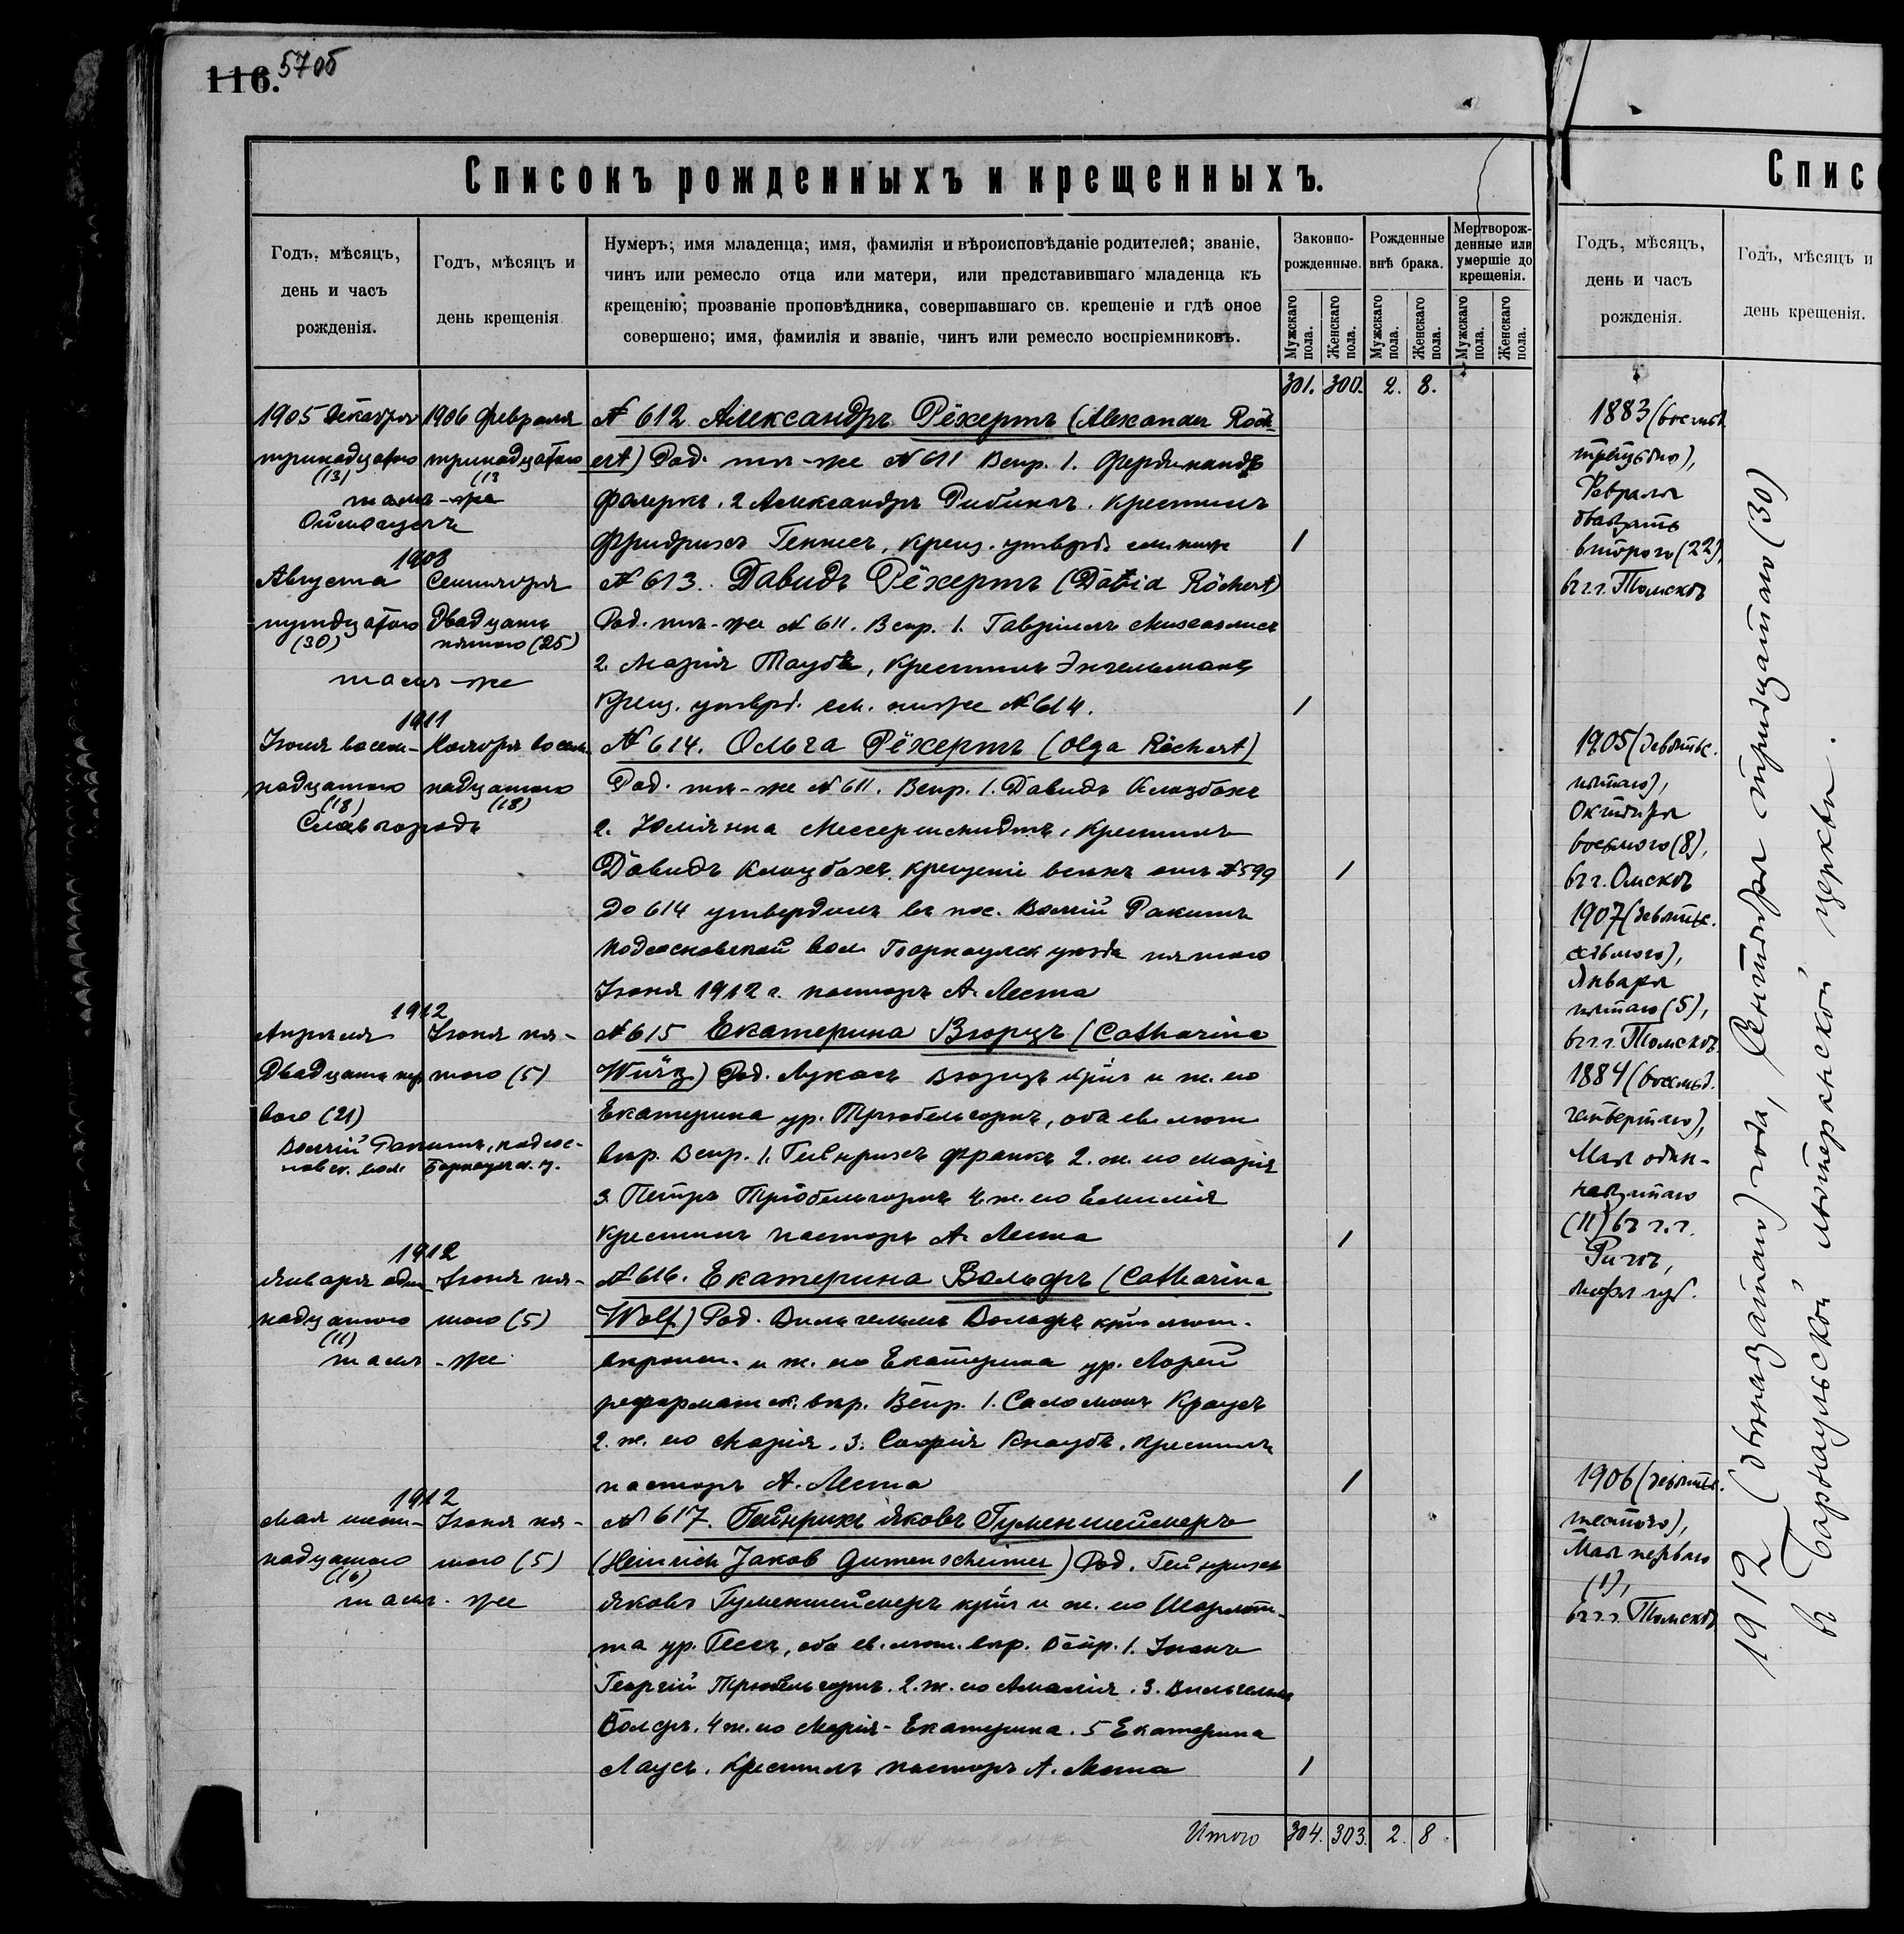 116. 57об
Списокъ рожденныхъ и крещенныхъ.
Годъ, мѣсяцъ, день и часъ рожденія.
Годъ, мѣсяцъ и день крещенія
Нумеръ; имя младенца; имя, фамилія и вѣроисповѣданіе родителей; званіе,
чинъ или ремесло отца или матери, или представившаго младенца къ
крещенію; прозваніе проповѣдника, совершавшаго св. крещеніе и гдѣ оное
совершено; имя, фамилія и званіе, чинъ или ремесло воспріемниковъ.
Законно-рожденные.
Рожденные внѣ брака.
Мертворож-денные или умершіе до крещенія.
Мужскаго пола. Женскаго пола. Мужскаго пола. Женскаго пола. Мужскаго пола. Женскаго пола.
301. 300. 2. 8.
1905 Декабря 1906 Февраля № 612 Александръ Рёхертъ (Alexander Röch-
тринадцатого тринадцатого ert) Род. тѣ-же № 611 Воспр. 1. Фердинандъ
(13) (13
тамъ-же Фалеркъ. 2 Александръ Рибинъ. Крестилъ
Фридрихъ Геннесъ, крещ. утвержд. см. ниже 1
1908
Августа Сентября № 613. Давидъ Рёхертъ (David Röchert)
тридцатого Двадцать Род. тѣ-же № 611. Воспр. 1. Гавріилъ
(30) пятого (25)
2. Марія Таубе, крестилъ Энгельманъ
тамъ-же
крещ. утвржд. см. ниже № 614. 1
1911
Іюня восем- Ноября восем № 614. Ольга Рёхертъ (Olga Röchert)
надцатого надцатого Род. тѣ-же № 611. Воспр. 1. Давидъ Клацбахъ
(18) (18)
Славгородъ 2. Юліянна Мессершмидтъ, крестилъ
Давидъ Клацбахъ. крещеніе всѣхъ отъ № 599 1
до 614 утвердилъ въ пос. Волчій Ракитъ
Подсосновской вол. Барнаулск уѣзда пятого
Іюня 1912 г. пасторъ А. Леста
1912
Апрѣля Іюня пя- № 615 Екатерина Вюрцъ (Catharina
Двадцать пер того (5) Würz) Род. Лукасъ Вюрцъ крнъ и ж. его
вого (21) Екатерина ур. Трюбельгорнъ, оба ев. лют
Волчій Ракитъ, подсос-
новск. вол. Барнаулск. у.
вѣр. Воспр. 1. Гейнрихъ Франкъ 2. ж. его Марія
3. Петръ Трюбельгорнъ 4. ж. его Емилія
крестилъ пасторъ А. Леста 1
1912
Января один Іюня пя- № 616. Екатерина Вольфъ (Catharina
надцатого того (5) Wolf) Род. Вильгельмъ Вольфъ крнъ лют.
(11)
тамъ-же вѣроисп. и ж. его Екатерина ур. Лорей
реформатск. вѣр. Воспр. 1. Саломонъ Краусъ
2. ж. его Марія. 3. Софія Кнаубъ. крестилъ
пасторъ А. Леста 1
1912
Мая шест- Іюня пя- № 617. Гейнрихъ Яковъ Гуменшеймеръ
надцатого того (5) (Heinrich Jakob Gumenscheimer) Род. Гейнрихъ
(16)
тамъ-же Яковъ Гуменшеймеръ крнъ и ж. его Шарлот-
та ур. Гессъ, оба ев. лют. вѣр. Воспр. 1. Іоганъ
Георгій Трюбельгорнъ. 2. ж. его Амалія. 3. Вильгельмъ
Вольфъ. 4 ж. его Марія-Екатерина. 5 Екатерина
Лаусъ. крестилъ пасторъ А. Леста 1
Итого 304. 303. 2. 8.
Списо
Годъ, мѣсяцъ, день и часъ рожденія.
Годъ, мѣсяцъ и день крещенія.
1883 (восемьд
третьяго),
Февраля
двадцать
второго (22),
въ г. Томскѣ
1905 (девятьс.
пятаго),
Октября
восьмого (8),
въ г. Омскѣ
1907 (девятьс.
седьмого),
Января
пятаго (5),
въ г. Томскѣ
1884 (восемьд.
четвертаго),
Мая один-
надцатаго
(11) въ г.
Ригѣ,
Лифл. губ.
1906 (девятьс.
шестого),
Мая перваго
(1),
въ г. Томскѣ
1912 (двѣнадцатаго) года, Сентября тридцатаго (30)
въ Барнаульской лютеранской церкви.